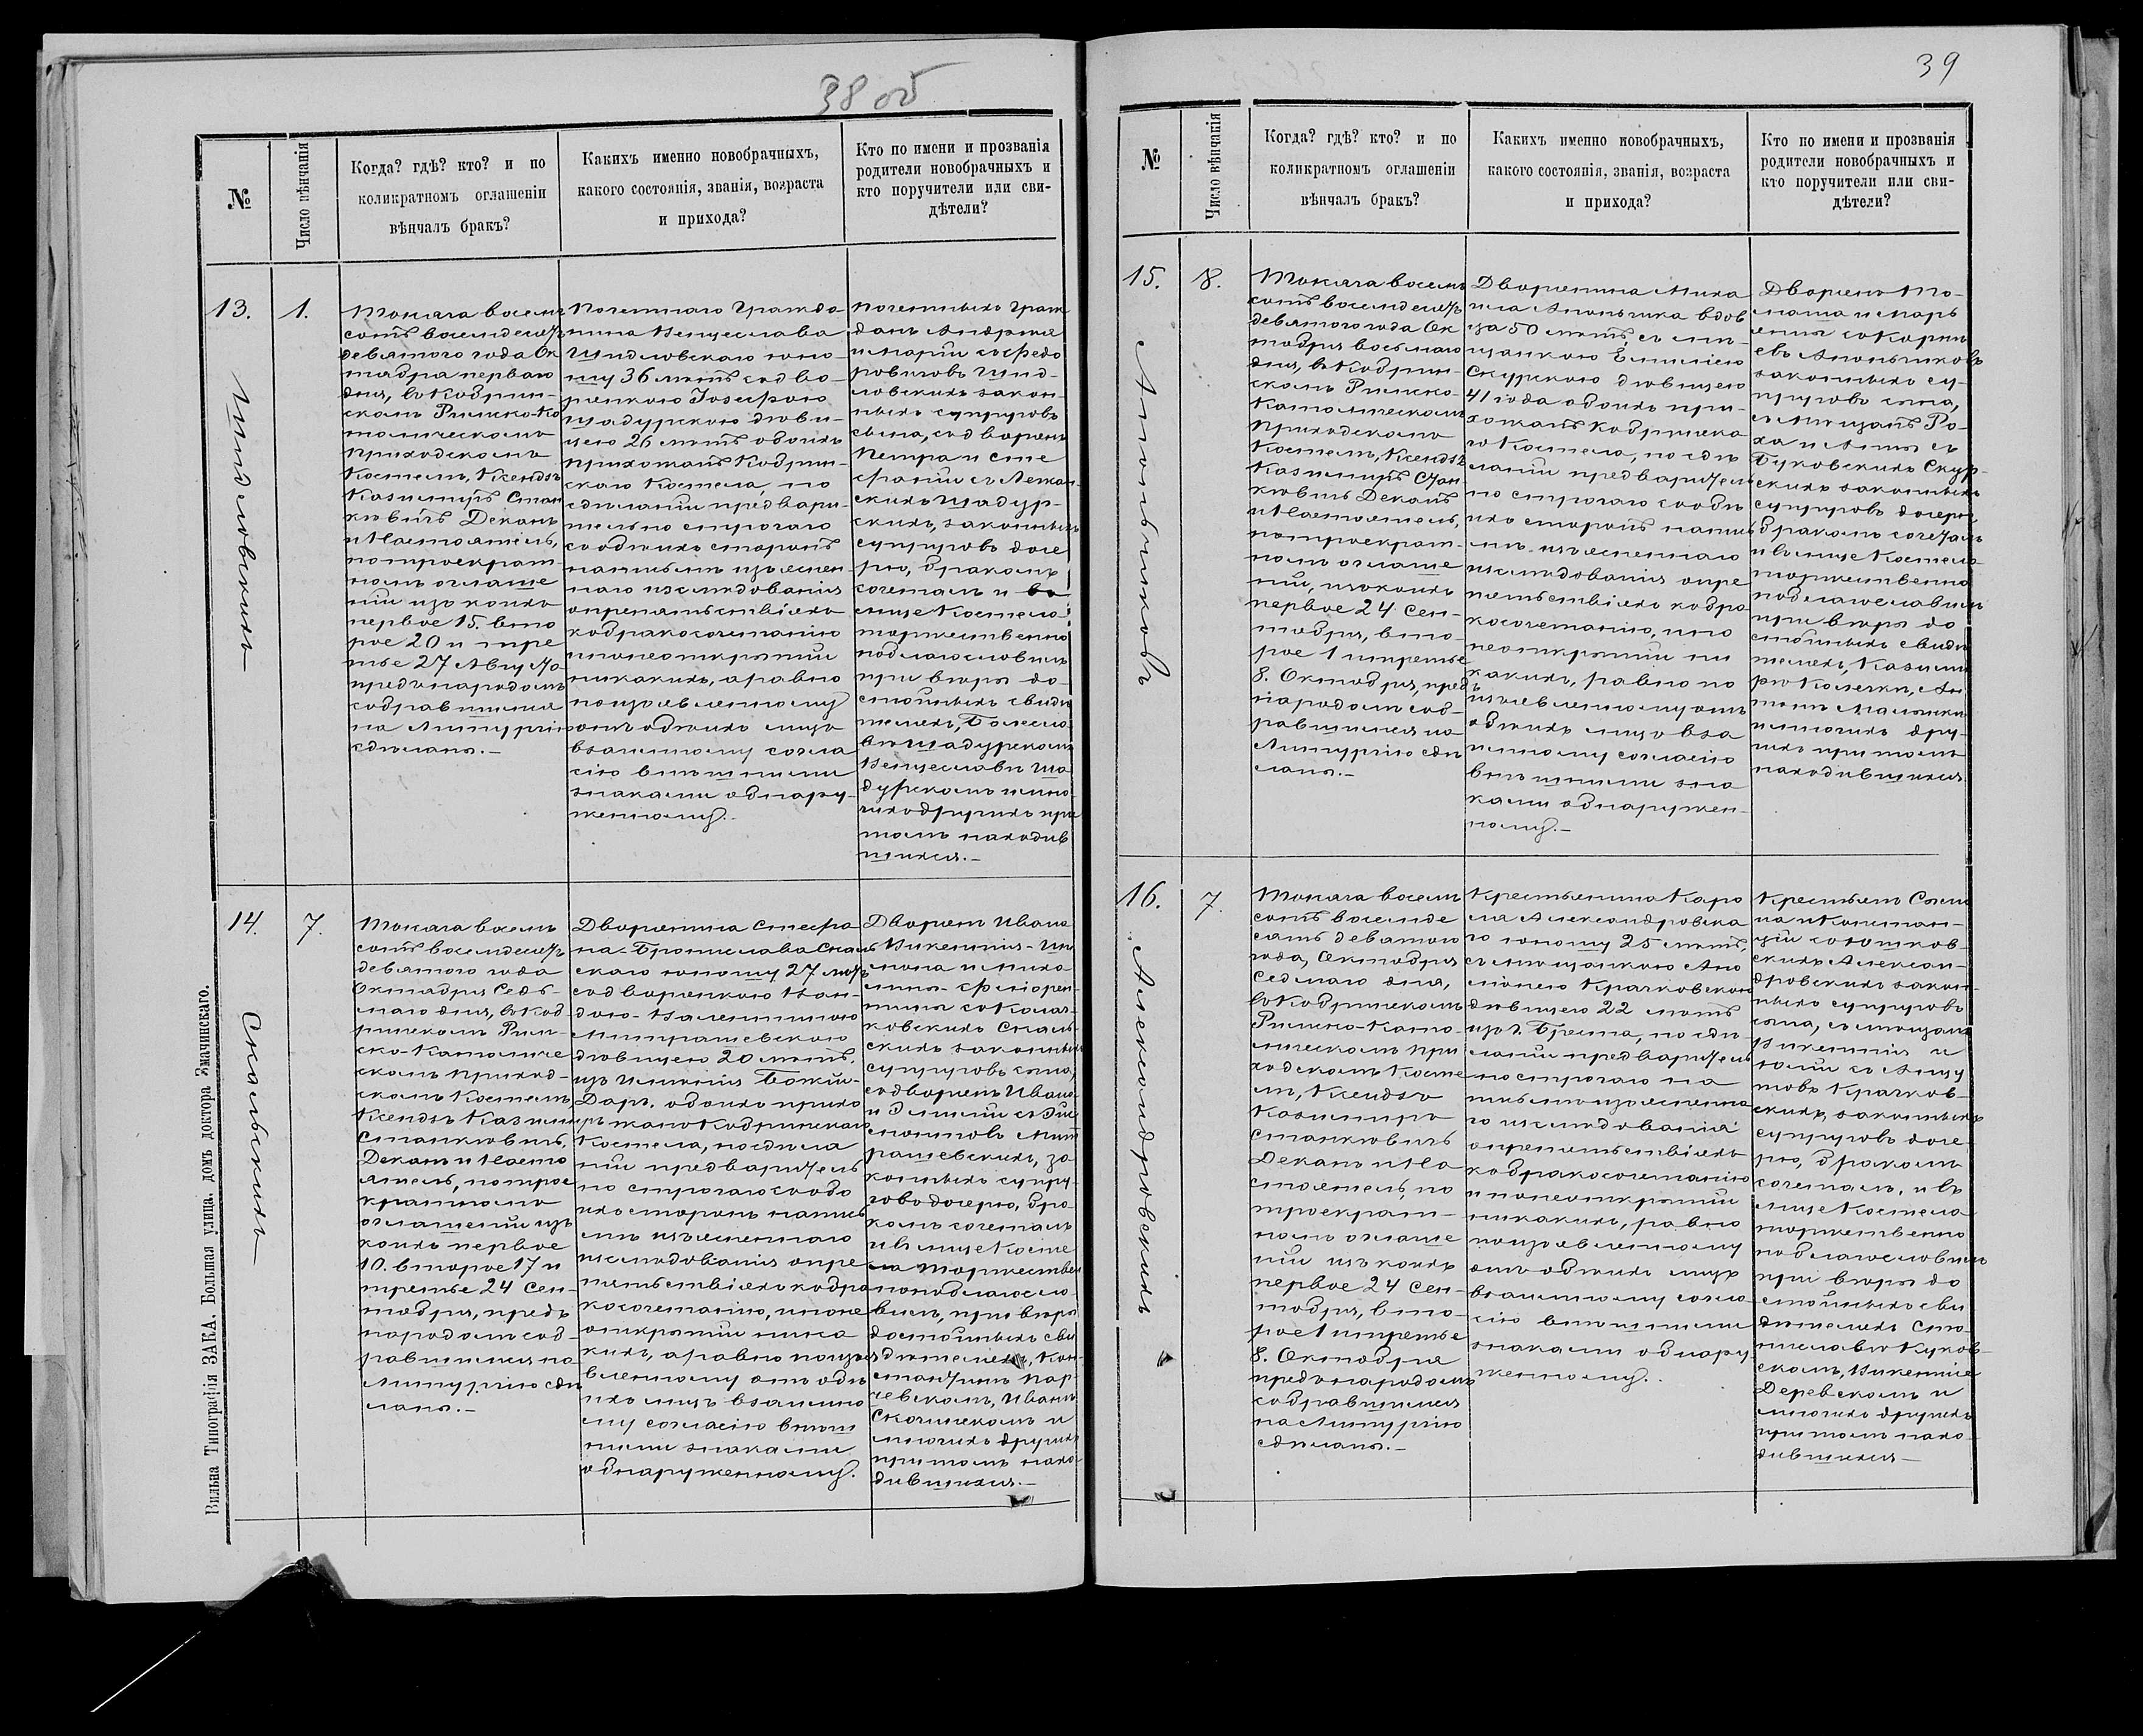 38 об
№
Число вѣнчанія
Когда? гдѣ? кто? и по
коликратномъ оглашеніи
вѣнчалъ бракъ?
Какихъ именно новобрачныхъ,
какого состоянія, званія, возраста
и прихода?
Кто по имени и прозванія
родители новобрачныхъ и
кто поручители или сви-
дѣтели?
13.
1.
Тысяча восемь
сотъ восемдесятъ
девятого года Ок
тября перваго
дня, въ Кобрин-
скомъ Римско-Ка
толическомъ
приходскомъ
Костелѣ, Ксендзъ
Казиміръ Стан
кевичъ Деканъ
и Настоятель,
по троекрат-
номъ оглаше
ніи изъ коихъ
первое 15. вто
рое 20 и тре
тье 27 Августа
предъ народомъ
собравшимся
на Литургію
сдѣланы.-
Почетнаго Гражда
нина Венцеслава
юно
шу 36 лѣтъ съ дво-
рянкою Іозефою
Шадурскою дѣви-
цею 26 лѣтъ обоихъ
прихожанъ Кобрин-
скаго Костела, по
сдѣланіи предвари-
тельно строгаго
со обѣихъ сторонъ
написьмѣ изъяснен
наго изслѣдованія
опрепятствіяхъ
кобракосочетанію
и понеоткрытіи
никакихъ, а равно
по изъявленному
отъ обѣихъ лицъ
взаимному согла
сію внѣшними
знаками обнару-
женному.-
Почетныхъ Граж
данъ Андрея
и Маріи съ Ѳедо
ровичовъ
закон
ныхъ супруговъ
сына, съ дворянъ
Петра и Сте
фаніи съ
скихъ Шадур-
скихъ, законныхъ
супруговъ доче
рью, бракомъ
сочеталъ и въ
лице Костела
торжественно
поблагословилъ
при вѣры до-
стойныхъ свидѣ
теляхъ, Болесла
вѣ Шадурскомъ
Венцеславѣ Ша
дурскомъ и мно
гихъ другихъ при
томъ находив
шихся.-
14.
7.
Скольскихъ
Тысяча восемь
сотъ восемдесятъ
девятого года
Октября Седь-
маго дня, въ Коб
ринскомъ Рим-
ско-Католиче
скомъ приход-
скомъ Костелѣ
Ксендзъ Казиміръ
Станкевичъ,
Деканъ и Насто
ятель, по трое
кратномъ
оглашеніи изъ
коихъ первое
10. второе 17 и
третье 24 Сен-
тября, предъ
народомъ соб-
равшимся на
Литургію сдѣ
ланы.-
Дворянина Стефа
на-Бронислава
скаго юношу 27 лѣтъ
съ дворянкою Ван-
дою-Валентиною
Митрашевскою
дѣвицею 20 лѣтъ,
изъ имѣнія Божій-
Даръ, обоихъ прихо
жанъ Кобринскаго
Костела, по сдѣла
ніи предваритель
но строгаго со обо
ихъ сторонъ напись
мѣ изъясненнаго
изслѣдованія опре
пятствіяхъ кобра
косочетанію, и поне
открытіи ника
кихъ, а равно по изъя
вленному отъ обѣ
ихъ лицъ взаимно
му согласію внѣш
ними знаками
обнаруженному.
Дворянъ Ивана
Викентія-
и Миха
лины-Флорен
тины съ
ковскихъ
скихъ законныхъ
супруговъ сына,
съ дворянъ Ивана
и Эмиліи съ
Мит
рашевскихъ, за
конныхъ супру
говъ дочерью, бра
комъ сочеталъ
и въ лице Косте
ла торжествен
но поблагосло
вилъ, при вѣры
достойныхъ сви
дѣтеляхъ, Кон
стантинѣ
Иванѣ
и
многихъ другихъ
при томъ нахо
дившихся.-
Вильна Типографія ЗАКА. Большая улица. домъ доктора Змачинскаго.
39
№
Число вѣнчанія
Когда? гдѣ? кто? и по
коликратномъ оглашеніи
вѣнчалъ бракъ?
Какихъ именно новобрачныхъ,
какого состоянія, званія, возраста
и прихода?
Кто по имени и прозванія
родители новобрачныхъ и
кто поручители или сви-
дѣтели?
15.
8.
Тысяча восемь
сотъ восемдесятъ
девятого года Ок
тября восьмаго
дня, въ Кобрин-
скомъ Римско-
Католическомъ
Приходскомъ
Костелѣ, Ксендзъ
Казиміръ Стан
кевичъ Деканъ
и Настоятель,
по троекрат-
номъ оглаше
ніи, изъ коихъ
первое 24 Сен-
тября, вто-
рое 1 и третье
8. Октября, предъ
народомъ соб-
равшимся на
Литургію сдѣ
ланы.-
Дворянина Миха
ила вдов
ца 50 лѣтъ, съ мѣ-
щанкою Емиліею
Скурскою дѣвицею
41 года обоихъ при-
хожанъ Кобринска
го Костела, по сдѣ
ланіи предваритель
но строгаго со обѣ
ихъ сторонъ напись
мѣ изъясненнаго
изслѣдованія опре
пятствіяхъ кобра
косочетанію, и по
неоткрытіи ни
какихъ, равно по
изъявленному отъ
обѣихъ лицъ вза
имному согласію
внѣшними зна
ками обнаружен-
ному.-
Дворянъ То-
маша и Марь
янны съ
законныхъ су-
пруговъ сына,
съ Мѣщанъ Ро-
ха и Анны съ
Буковскихъ Скур-
скихъ законныхъ
супруговъ дочерью
бракомъ сочеталъ
и въ лице Костела
торжественно
поблагословилъ
при вѣры до
стойныхъ свидѣ
теляхъ, Казими
рѣ
и многихъ дру-
гихъ при томъ
находившихся.
16.
7.
Александровскихъ
Тысяча восемь
сотъ восемде
сятъ девятого
года, Октября
Седмаго дня,
въ Кобринскомъ
Римско-Като-
лическомъ При
ходскомъ Косте
лѣ, Ксендзъ
Казиміръ
Станкевичъ
Деканъ и На
стоятель, по
троекрат-
номъ оглаше
ніи изъ коихъ
первое 24 Сен-
тября, вто-
рое 1 и третье
8. Октября
предъ народомъ
собравшимся
на Литургію
сдѣланы.-
Крестьянина Каро
ля Александровска
го юношу 25 лѣтъ,
съ мѣщанкою Апо
лоніею Крачковскою
дѣвицею 22 лѣтъ
изъ г. Бреста, по сдѣ
ланіи предваритель
но строгаго на
письмѣ изъясненна
го изслѣдованія
опрепятствіяхъ
кобракосочетанію
и понеоткрытіи
никакихъ, равно
по изъявленному
отъ обѣихъ лицъ
взаимному согла
сію внѣшними
знаками обнару
женному.
Крестьянъ
на и Констан-
ціи съ
скихъ Алексан-
дровскихъ закон
ныхъ супруговъ
сына, съ мѣщанъ
Викентія и
Крачков-
скихъ, законныхъ
супруговъ доче-
рью, бракомъ
сочеталъ, и въ
лице Костела
торжественно
поблагословилъ
при вѣры до
стойныхъ сви
дѣтеляхъ Ста-
ниславѣ
Викентіе
Деревскомъ и
многихъ другихъ
при томъ нахо
дившихся-